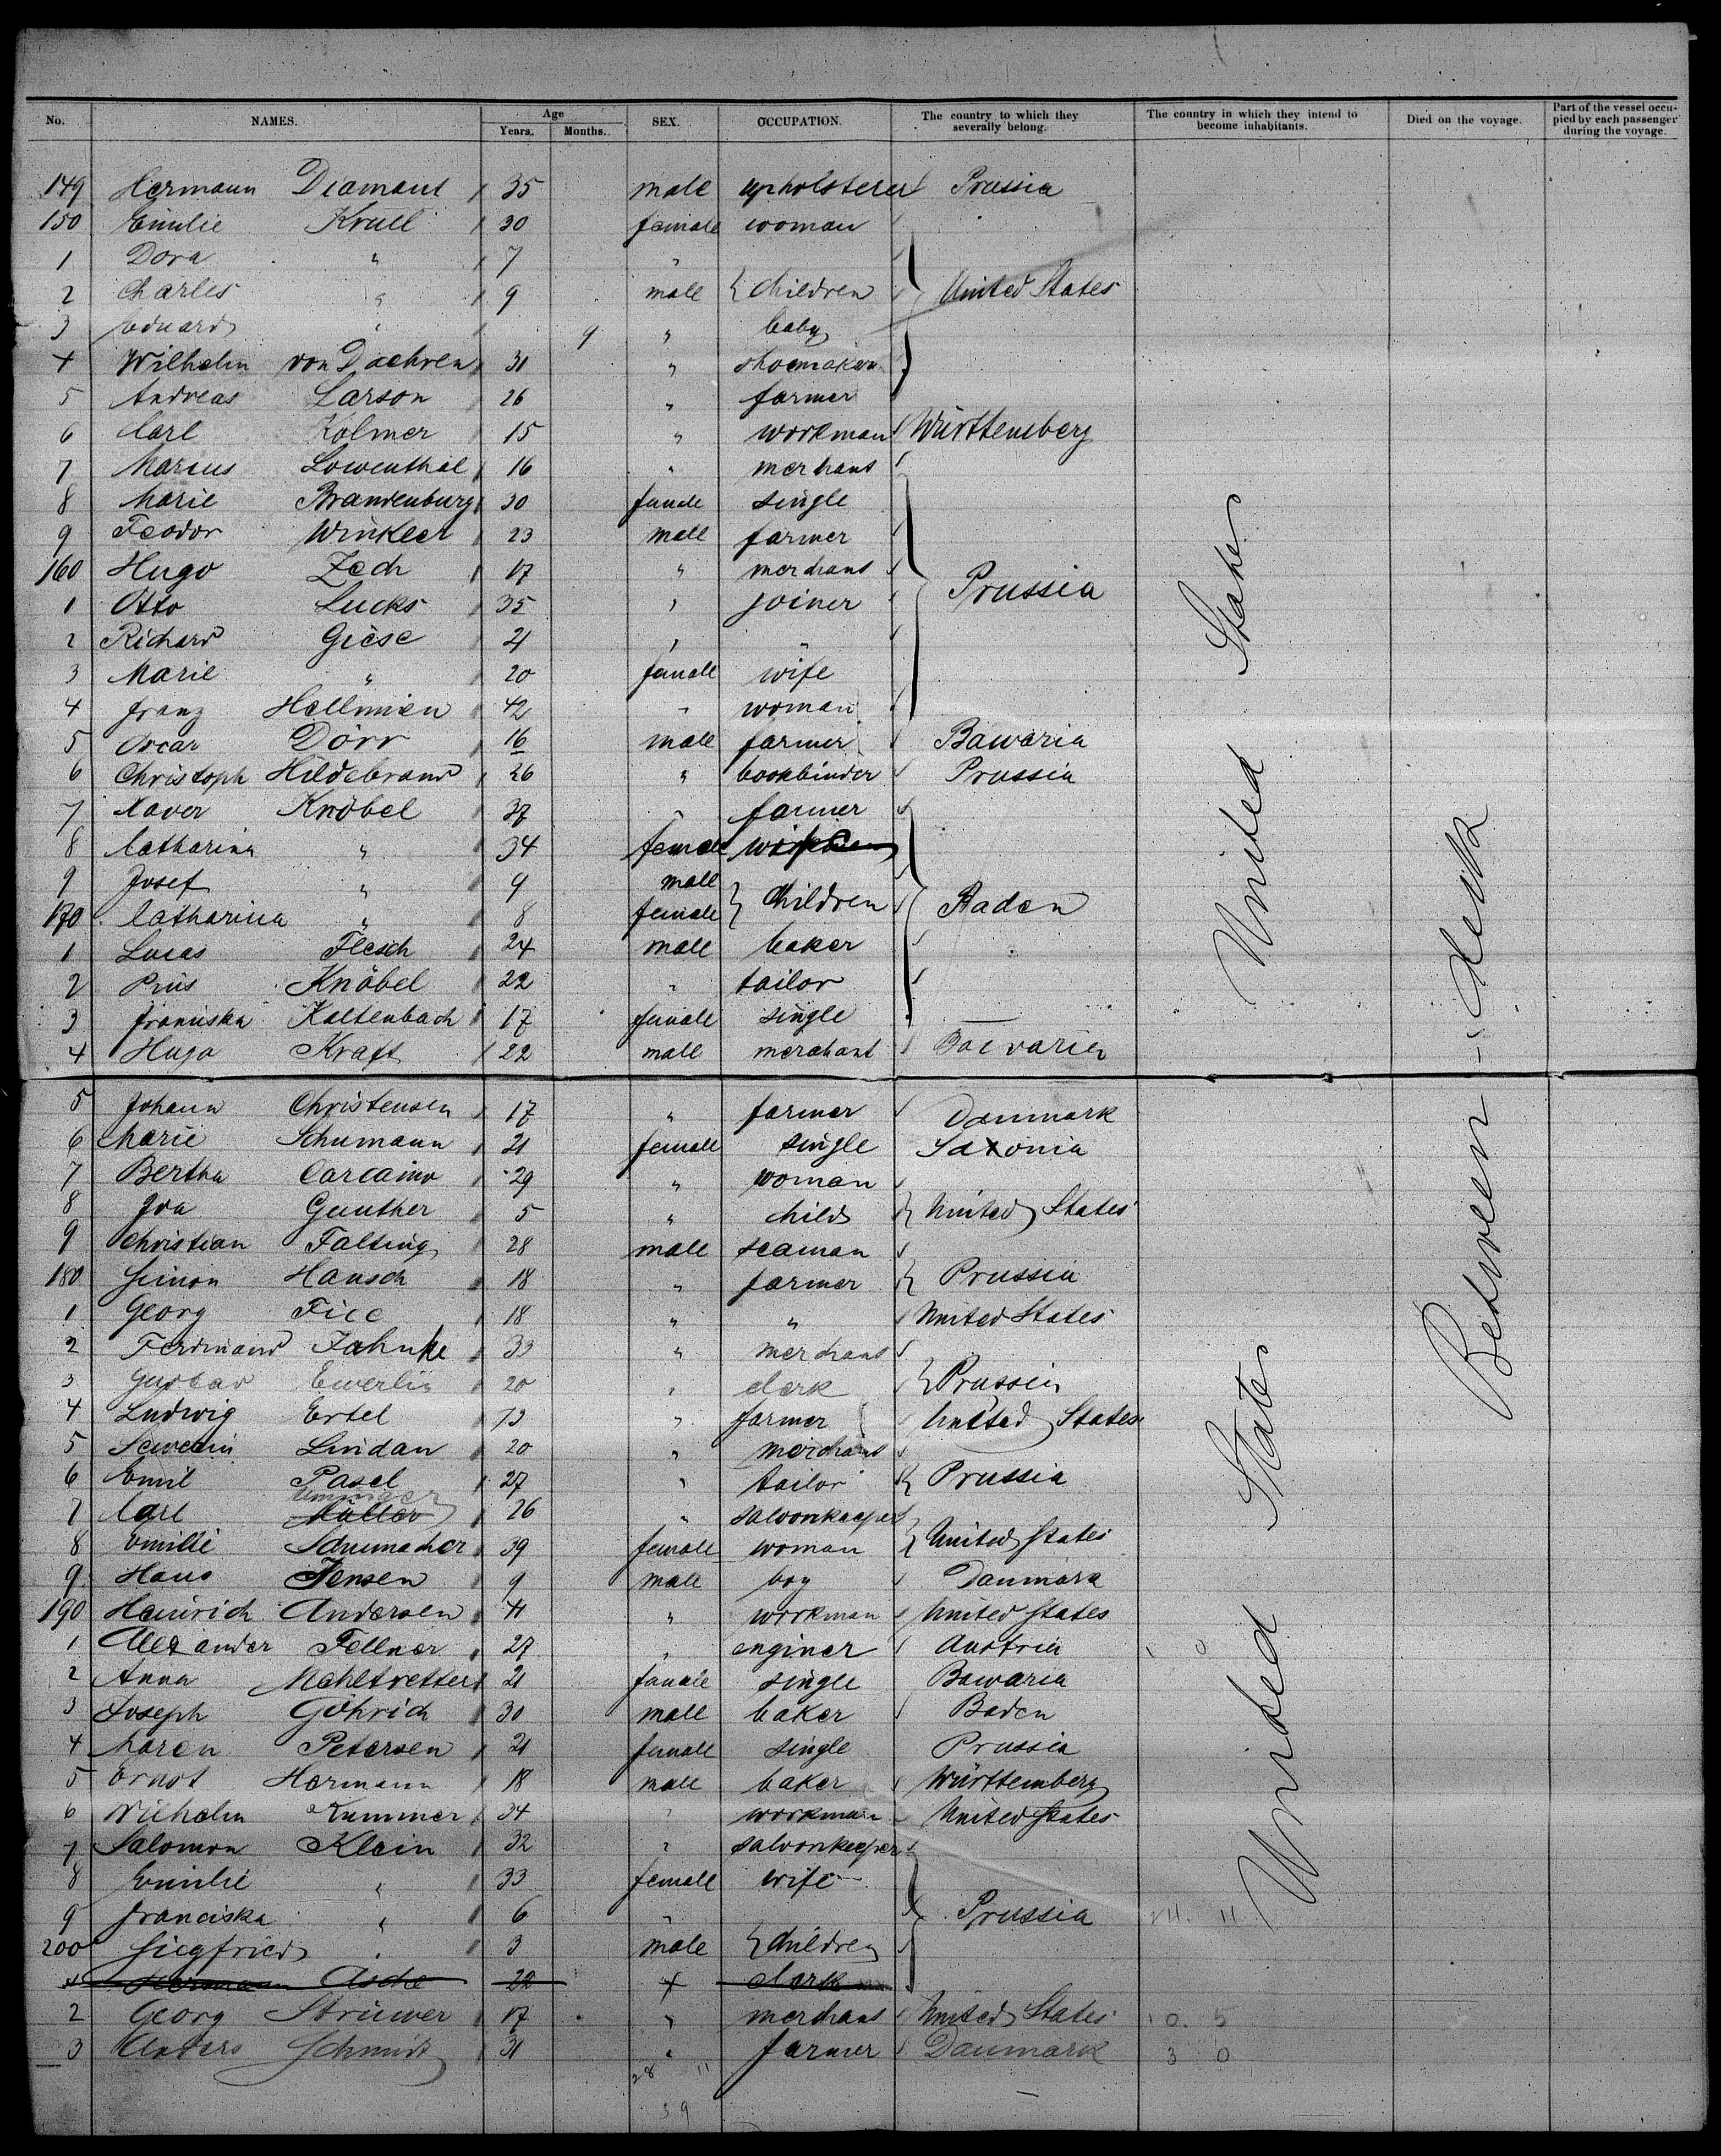 No. NAMES. Age Years. Months. SEX. OCCUPATION. The country to which they severally belong. The country in which they intend to become inhabitants. Died on the voyage. Part of the vessel occupied by each passenger during the voyage.
149 Hermann Diamant 35 male upholsterer Prussia
150 Emilie Krull 30 female woman
1 Dora " 7 "
2 Charles " 9 male } children United States
3 Eduard " 9 " baby
4 Wilhelm von Daehren 31 " shoemaker
5 Andreas Larson 26 " farmer
6 Carl Kolmer 15 " workman Württemberg
7 Marcus Lowenthal 16 " merchant
8 Marie Brandenburg 30 female single
9 Feodor Winkler 23 male farmer
160 Hugo Zech 17 " merchant
1 Otto Lucks 35 " joiner Prussia
2 Richard Giese 21 " "
3 Marie " 20 female wife
4 Franz Hellmien 42 " woman
5 Oscar Dörr 16 male farmer Bawaria
6 Christoph Hildebrand 26 " bookbinder Prussia
7 Xaver Knöbel 37 " farmer
8 Catharina " 34 female
9 Josef " 9 male
170 Catharina " 8 female } Children Baden
1 Lucas Flesch 24 male baker
2 Pius Knäbel 22 " tailor
3 Franciska Kaltenbach 17 female single
4 Hugo Kraft 22 male merchant Bawaria
5 Johann Christensen 17 " farmer Danmark
6 Marie Schumann 21 female single Saxonia
7 Bertha 29 " woman
8 Ida Gunther 5 " child } United States
9 Christian Falting 28 male seaman
180 Simon Hansch 18 " farmer } Prussia
1 Georg Fice 18 " " United States
2 Ferdinand Jahnke 33 " merchant
3 Gustav Ewerlin 20 " clerk } Prussia
4 Ludwig Ertel 73 " farmer United States
5 Severin Lindau 20 " merchant
6 Emil Pasel 27 " tailor } Prussia
7 Carl Müller 26 " saloonkeeper
8 Emilie Schumacher 39 female woman } United States
9 Hans Jensen 9 male boy Danmark
190 Heinrich Andersen 41 " workman United States
1 Alexander Fellner 27 " enginer Austria
2 Anna Mahltretter 21 female single Bawaria
3 Joseph Göhrich 30 male baker Baden
4 Maren Petersen 21 female single Prussia
5 Ernst Hermann 18 male baker Württemberg
6 Wilhelm Kummer 34 " workman United States
7 Salomon Klein 32 " saloonkeeper
8 Emilie " 33 female wife
9 Franciska " 6 " Prussia
200 Siegfried " 3 male } children
Hermann Asche 22 clerk
2 Georg Strüwer 17 " merchant United States
3 Anders Schmidt 31 " farmer Danmark
28 11
39
United States
United States
Between deck